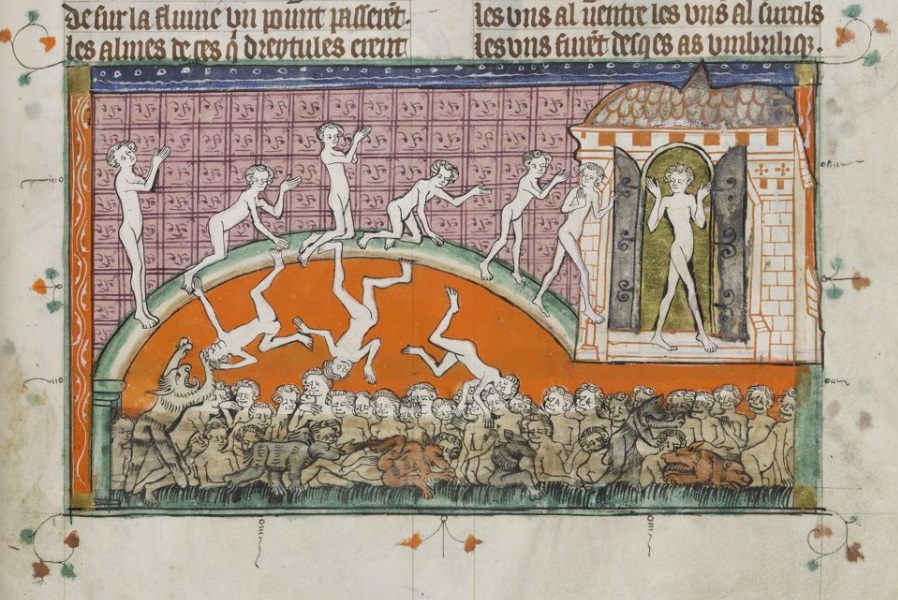 de sur la flume vn point passerēt.
les almes de ces q̄ dreytules erent
les vns al uentre les vns al surcils
les vns furēt desqes as vmbriliqz.